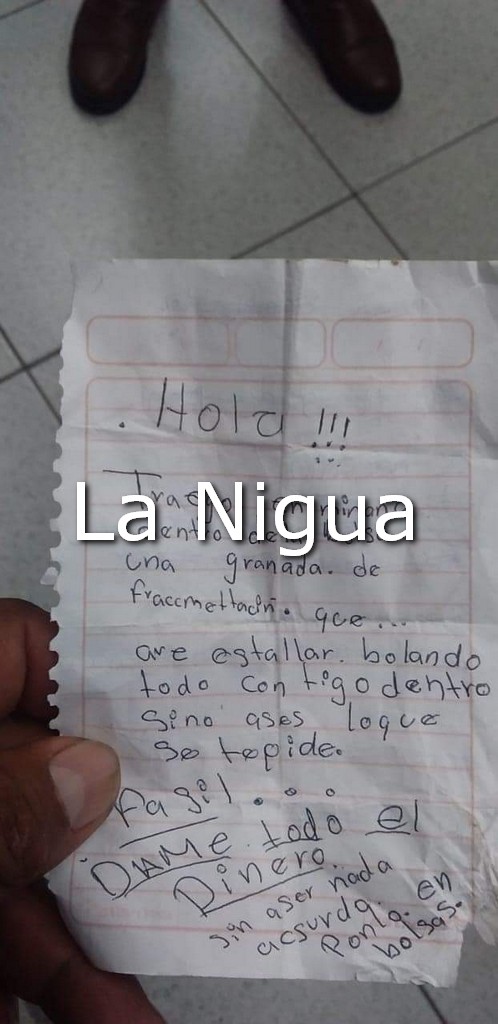 Hola !!!
La Nigua
una granada. de
fraccmettación. que...
are estallar. bolando
todo con tigo dentro
sino ases loque
se tepide.
Fasil...
DAME todo el
Dinero
sin aser nada
acsurda.
Ponla. en
bolsas.